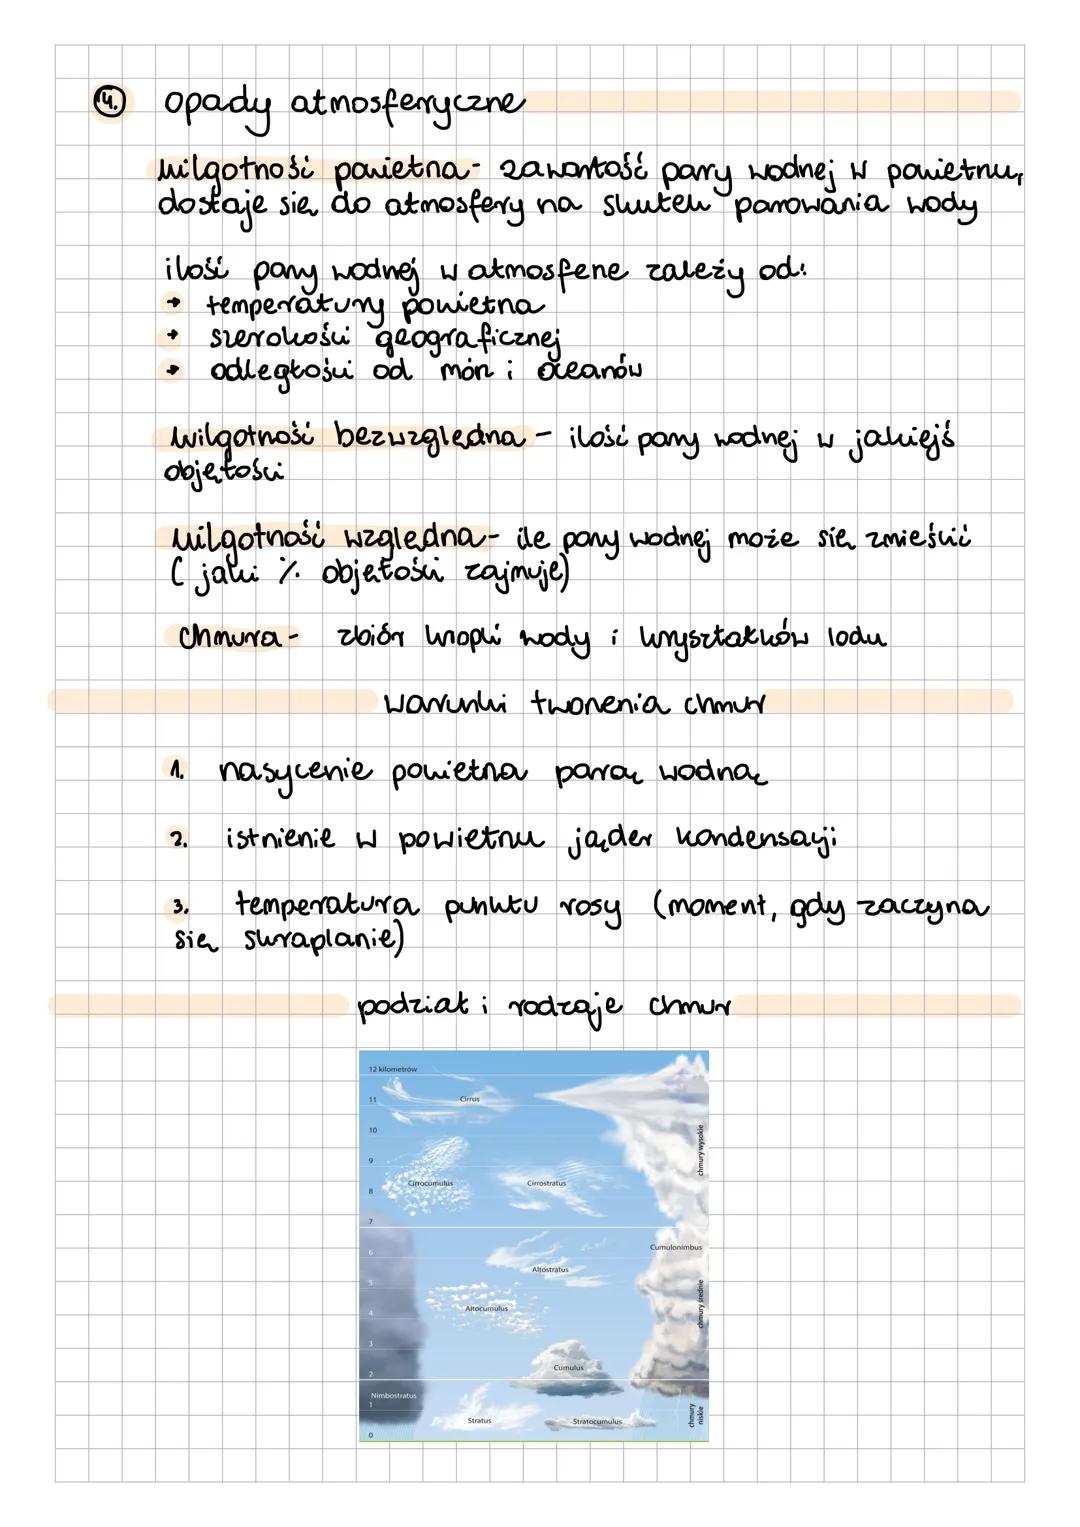 4. opady atmosferyczne
wilgotność powietrza - zawartość pary wodnej w powietrzu,
dostaje się do atmosfery na skutek parowania wody
ilość pary wodnej w atmosferze zależy od:
→ temperatury powietrza
→ szerokości geograficznej
→ odległości od mórz i oceanów
wilgotność bezwzględna - ilość pary wodnej w jakiejś
objętości
wilgotność względna - ile pary wodnej może się zmieścić
(jaki % objętości zajmuje)
chmura - zbiór kropli wody i kryształków lodu
warunki tworzenia chmur
1. nasycenie powietrza parą wodną
2. istnienie w powietrzu jąder kondensacji
3. temperatura punktu rosy (moment, gdy zaczyna
się skraplanie)
podział i rodzaje chmur
12 kilometrów
11
Cirrus
10
9
chmury wysokie
8
Cirrocumulus
Cirrostratus
7
6
Cumulonimbus
Altostratus
5
chmury średnie
4
Altocumulus
3
2
Cumulus
Nimbostratus
1
chmury
niskie
Stratus
Stratocumulus
0